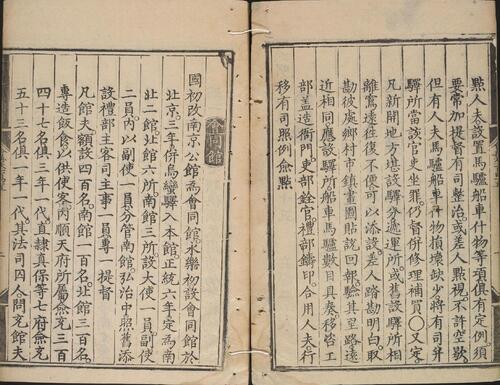 點人夫設置馬驢船車什物等項俱有定例須
要常加提督有司整治。或差人點視。不許空歇。
但有人夫馬驢船車什物損壞缺少將有司幷
驛所當該官吏坐罪。仍督併修理補買〇又定。
凡新開地方堪設驛分遞運所。或舊設驛所相
離窵遠往復不便可以添設差人踏勘明白。取
勘彼處鄉村市鎮畫圖貼說回報。驗其里路遠
近相同應設驛所船車馬驢數目具奏移咨工
部盖造衙門。吏部銓官。禮部鑄印。合用人夫行
移有司照例僉點
會同館
國初改南京公館爲會同館。永樂初設會同館於
北京。三年併烏蠻驛入本館。正統六年定爲南
北二館。北館六所南館三所設大使一員副使
二員內以副使一員分管南館。弘治中照舊添
設禮部主客司主事一員專一提督
凡館夫額設四百名。南館一百名。北館三百名。
專造飯食以供使客內順天府所屬僉充三百
四十七名俱三年一代。直隸真保等七府僉充
五十三名俱一年一代。其法司囚人問充館夫